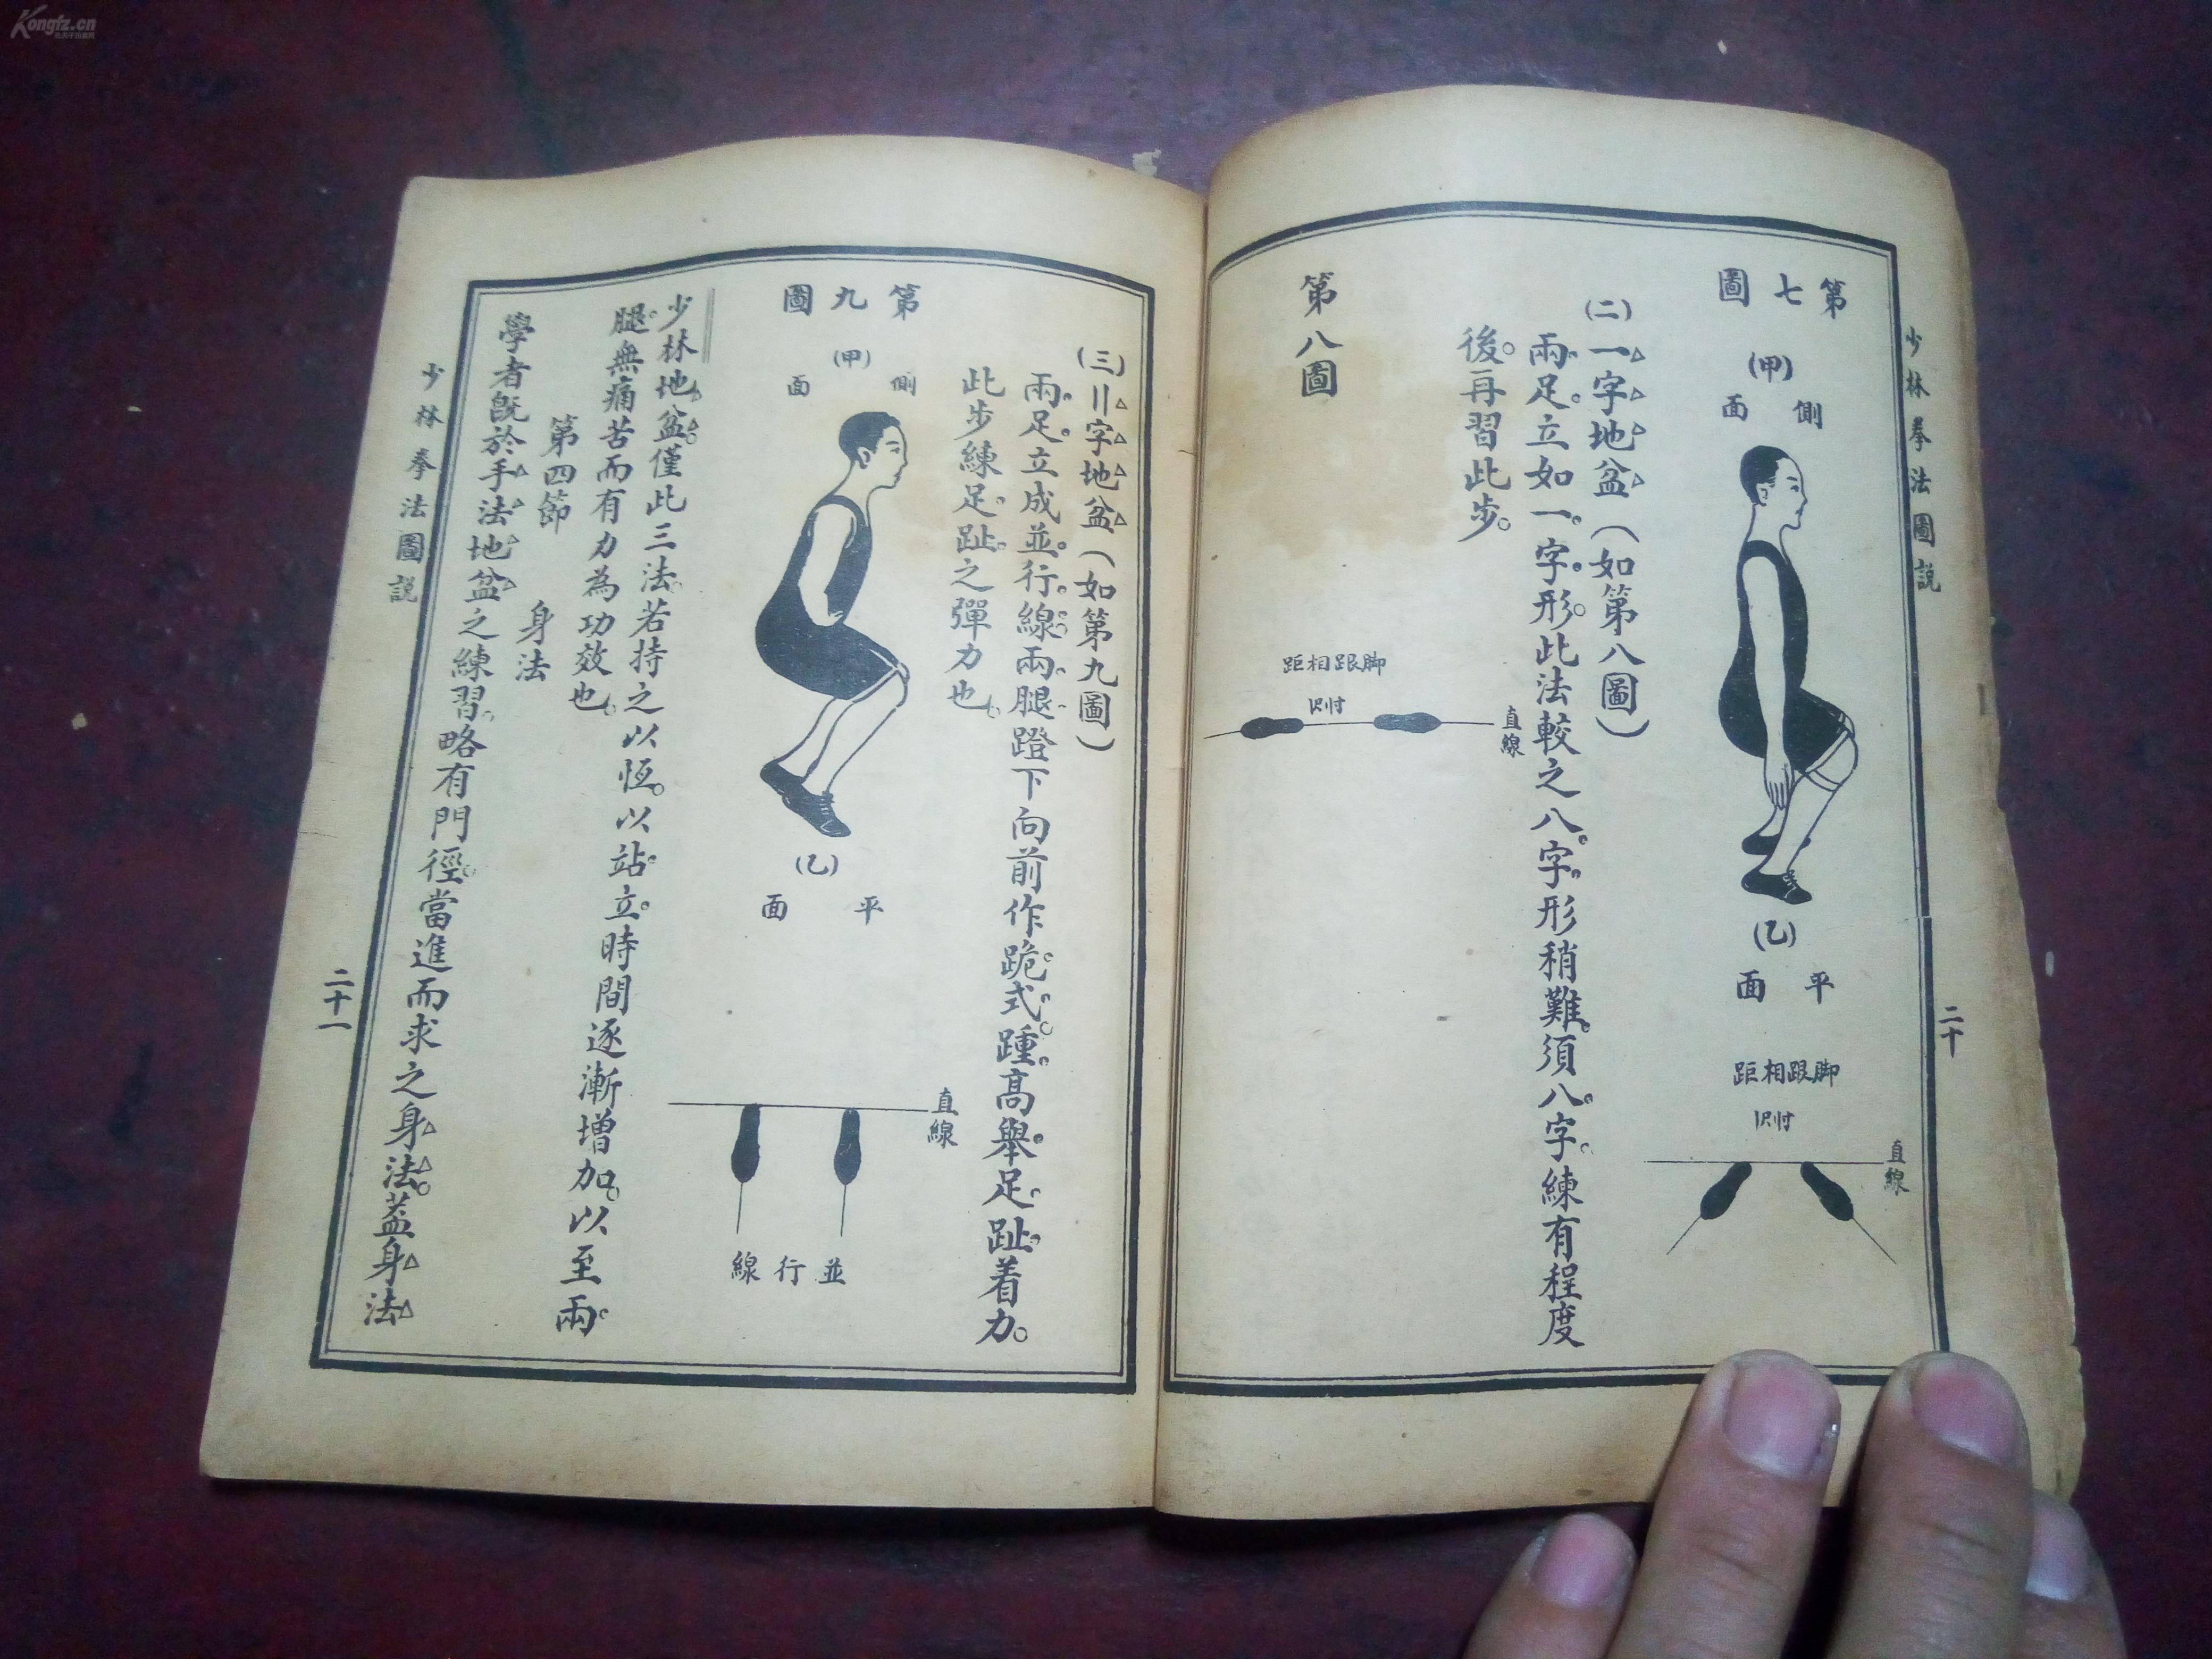 Kongfz.cn
少林拳法圖説
二十
第七圖
(甲)
側面
(乙)
平面
脚跟相距
直線
(二)一字地盆(如第八圖)
兩足。立如一。字。形。此法較之八。字。形稍難。須八。字。練有程度
後。再習此步。
第八圖
脚跟相距
直線
(三)〢字地盆(如第九圖)
兩。足。立成並。行。線。兩。腿。蹬下向前作跪。式。踵。高舉。足。趾。着力。
此步練足。趾。之彈力也。
第九圖
(甲)
側面
(乙)
平面
直線
並行線
少林地盆。僅此三法。若持之以恆。以站。立。時間逐漸增加。以至兩。
腿。無痛苦而有力為功效也。
第四節 身法
學者既於手法地盆之練習。略有門徑。當進而求之身法。蓋身法
少林拳法圖説
二十一